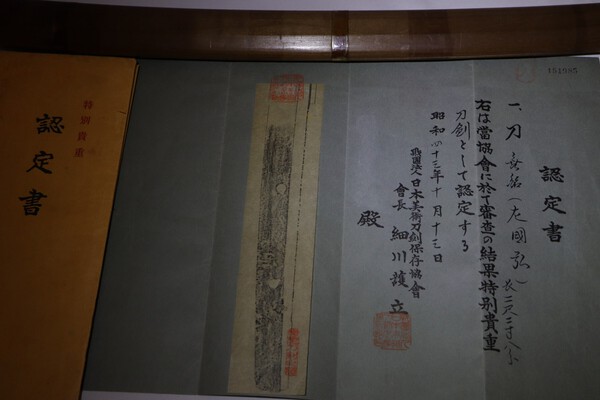 認定書
一、刀 無銘(左國弘) 長二尺二寸八分
右は當協會に於て審査の結果特別貴重
刀劍として認定する
昭和四十三年十月十三日
財團法人日本美術刀劍保存協會
會長 細川護立
殿
特別貴重
認定書